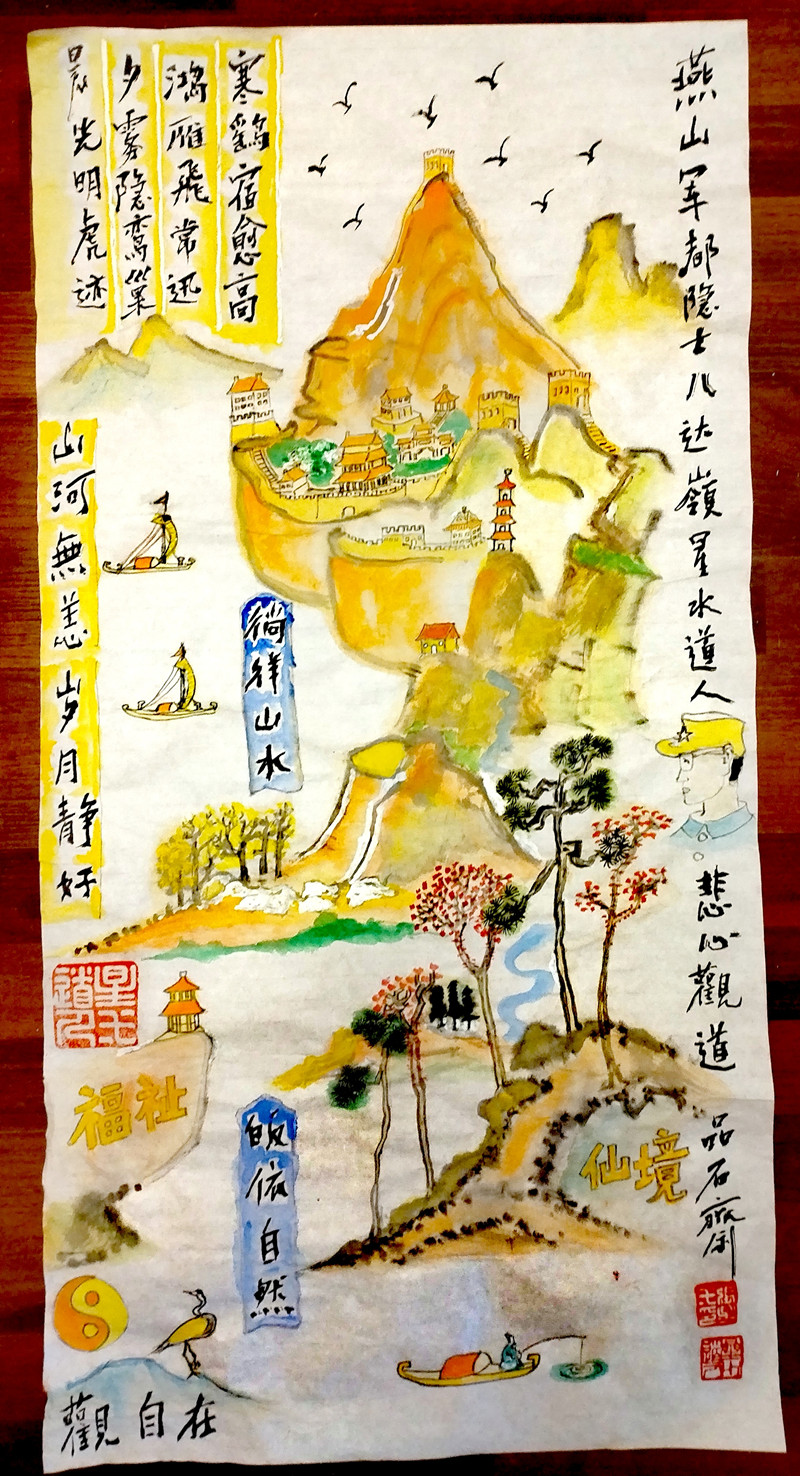 燕山军都隐士八达嶺星水道人
悲心觀道
品石齋
寒鹤宿愈高
鸿雁飛常迅
夕雾隐鸾巢
晨光明虎迹
山河無恙
岁月静好
徜徉山水
星水道人
福社
皈依自然
仙境
觀自在